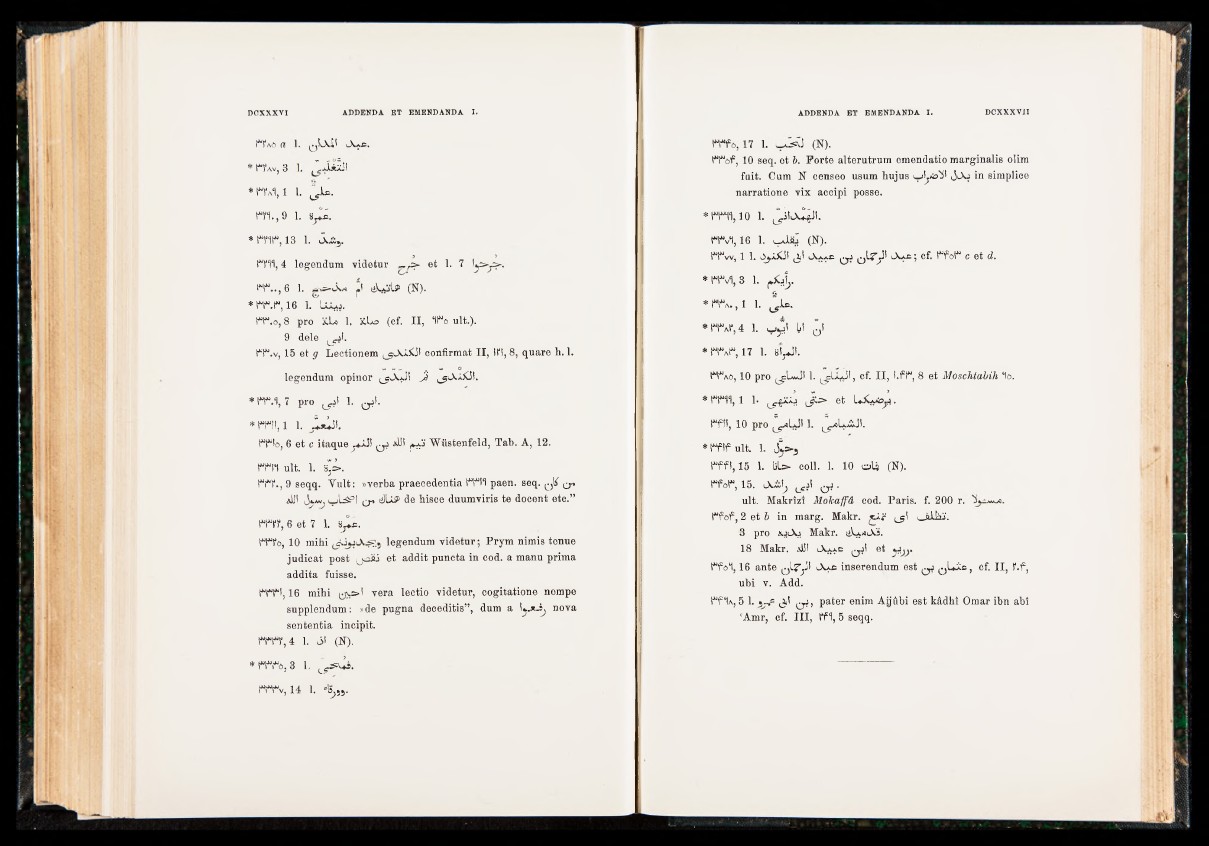 DCXXXVI ADDENDA ET EMENDANDA I.
٣٢٨٥ a l. عبد المدان.
* ٣٢٨٧, 3 l. التَّغْلَبِىّ
* ٣٢٨٩, 1 l. علىّ.
٣٢٩٠, 9 l. عَمْرة.
* ٣٢٩٣, 13 l. وشدّ.
٣٢٩٩, 4 legendum videtur جُرح et l. 7 جُرحوا.
٣٣٠٠, 6 l. (N).
* ٣٣٠٣, 16 l. بيننا.
٣٣٠٥, 8 pro صلة l. صلة (cf. II, ٩٣٥ ult.).
9 dele ابى.
٣٣٠٧, 15 et g Lectionem الكندى confirmat II, 8, quare h. l.
legendum opinor الكِنْدىّ ثمّ البَدّىّ.
* ٣٣٠٩, 7 pro ابى l. ابن.
* ٣٣١١, 1 l. المُعَمَّر.
٣٣١٥, 6 et c itaque تيم الله بن النمر Wüstenfeld, Tab. A, 12.
٣٣١٩ ult. l. حُرّة.
٣٣٢٠, 9 seqq. Vult: »verba praecedentia ٣٣١٩ paen. seq. من كان
هناك من اصحاب رسول الله de hisce duumviris te docent etc.”
٣٣٢٢, 6 et 7 l. عَمْرة.
٣٣٢٥, 10 mihi legendum videtur; Prym nimis tenue
judicat post نقص et addit puncta in cod. a manu prima
addita fuisse.
٣٣٣١, 16 mihi vera lectio videtur, cogitatione nempe
supplendum: »de pugna deceditis”, dum a nova
sententia incipit.
٣٣٣٢, 4 l. اذ (N).
* ٣٣٣٥, 3 l.
٣٣٣٧, 14 l.
ADDENDA ET EMENDANDA I. DCXXXVII
٣٣٤٥, 17 l. (N).
٣٣٥٤, 10 seq. et b. Forte alterutrum emendatio marginalis olim
fuit. Cum N censeo usum hujus بدل الاضراب in simplice
narratione vix accipi posse.
* ٣٣٦٩, 10 l. الهَمْدانىّ.
٣٣٧٦, 16 l. (N).
٣٣٧٧, 1 l. عبد الرحمان بن عبيد ابى الكنود; cf. ٣٤٥٣ c et d.
* ٣٣٧٩, 3 l. رأيكم.
* ٣٣٨٠, 1 l. علىّ.
* ٣٣٨٢, 4 l. انّ ابا ايّوب
* ٣٣٨٣, 17 l. المرأة.
٣٣٨٥, 10 pro l. cf. II, ١٠٤٣, 8 et Moschtabih ٦٥.
* ٣٣٩٩, 1 l. حتّى ينتهى et يُرضيكما.
٣٤١١, 10 pro اليامىّ l. الشبامىّ.
* ٣٤١٤ ult. l. وحوّل
٣٤٤١, 15 l. coll. l. 10 (N).
٣٤٥٣, 15. بن ابى راشد.
ult. Makrîzî Mokaffâ cod. Paris. f. 200 r.
٣٤٥٤, 2 et b in marg. Makr. تظلّف اى تمنع.
3 pro يديه Makr. قدميك.
18 Makr. ابن عبيد الله et
٣٤٥٦, 16 ante عبد الرحمان inserendum est عثمان بن, cf. II, ٢٠٤,
ubi v. Add.
٣٤٦٨, 5 l. بن ابى عمرو, pater enim Ajjûbi est kâdhî Omar ibn abî
‘Amr, cf. III, ٢٤٩, 5 seqq.